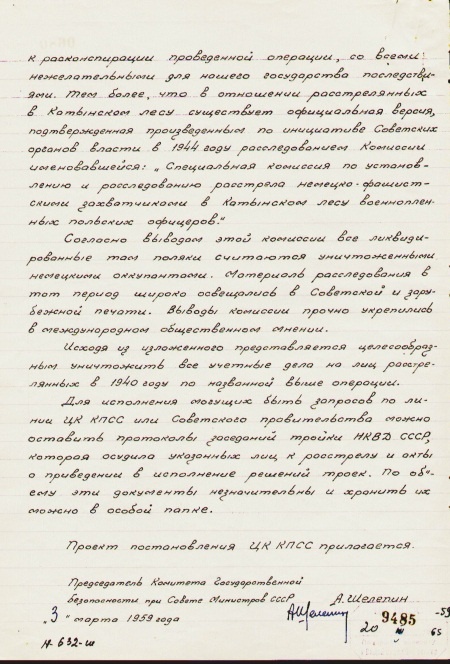 к расконспирации проведенной операции, со всеми
нежелательными для нашего государства последстви-
ями. Тем более, что в отношении расстрелянных
в Катынском лесу существует официальная версия,
подтвержденная произведенным по инициативе Советских
органов власти в 1944 году расследованием Комиссии
именовавшейся: „Специальная комиссия по установ-
лению и расследованию расстрела немецко-фашист-
скими захватчиками в Катынском лесу военноплен-
ных польских офицеров."
Согласно выводам этой комиссии все ликвиди-
рованные там поляки считаются уничтоженными
немецкими оккупантами. Материалы расследования в
тот период широко освещались в Советской и зару-
бежной печати. Выводы комиссии прочно укрепились
в международном общественном мнении.
Исходя из изложенного представляется целесообраз-
ным уничтожить все учетные дела на лиц расстре-
лянных в 1940 году по названной выше операции.
Для исполнения могущих быть запросов по ли-
нии ЦК КПСС или Советского правительства можно
оставить протоколы заседаний тройки НКВД СССР,
которая осудила указанных лиц к расстрелу и акты
о приведении в исполнение решений троек. По объ-
ему эти документы незначительны и хранить их
можно в особой папке.
Проект постановления ЦК КПСС прилагается.
Председатель Комитета Государственной
безопасности при Совете Министров СССР
А. Шелепин
АШелепин
„3" марта 1959 года
9485
-59
20 III 65
Н-632-ш